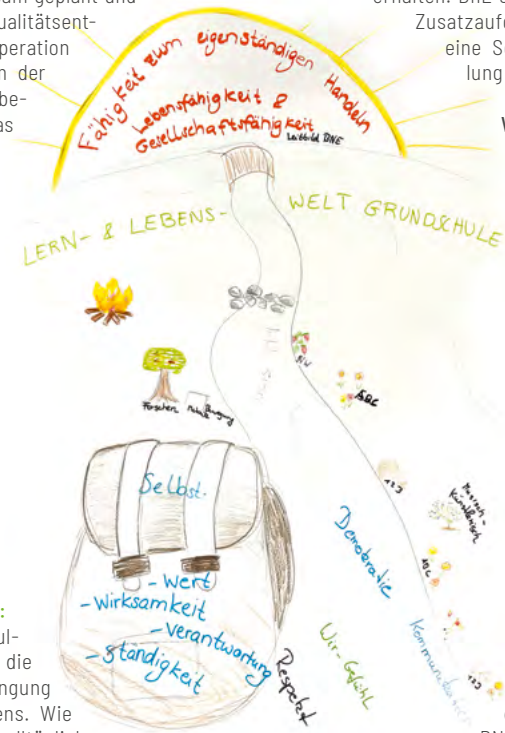 am geplant und
ualitätsent-
peration
n der
be-
as
erhalten. BNE
Zusatzaufe
eine S
lung
W
Fähigkeit zum eigenständigen Handeln
Lebensfähigkeit &
Gesellschaftsfähigkeit
Leitbild BNE
LERN- & LEBENS- WELT GRUNDSCHULE
ABC
Forschen
Bewegung
123
Musisch-
Künstlerisch
Selbst-
- wert
- wirksamkeit
- verantwortung
- ständigkeit
Demokratie
ABC
Kommunikation
Wir-Gefühl
Respekt
123
:
ul-
die
ngung
ens. Wie